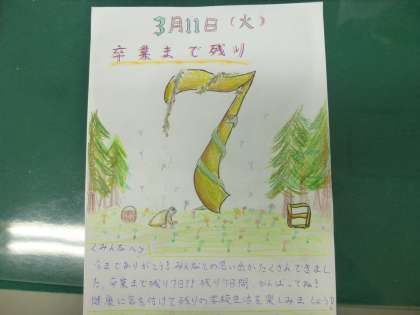 3月11日(火)
卒業まで残り
7
日
<みんなへ>
今までありがとう!みんなとの思い出がたくさんできまし
た。卒業まで残り7日!!残り7日間、がんばってね!
健康に気を付けて残りの学校生活を楽しみましょう!